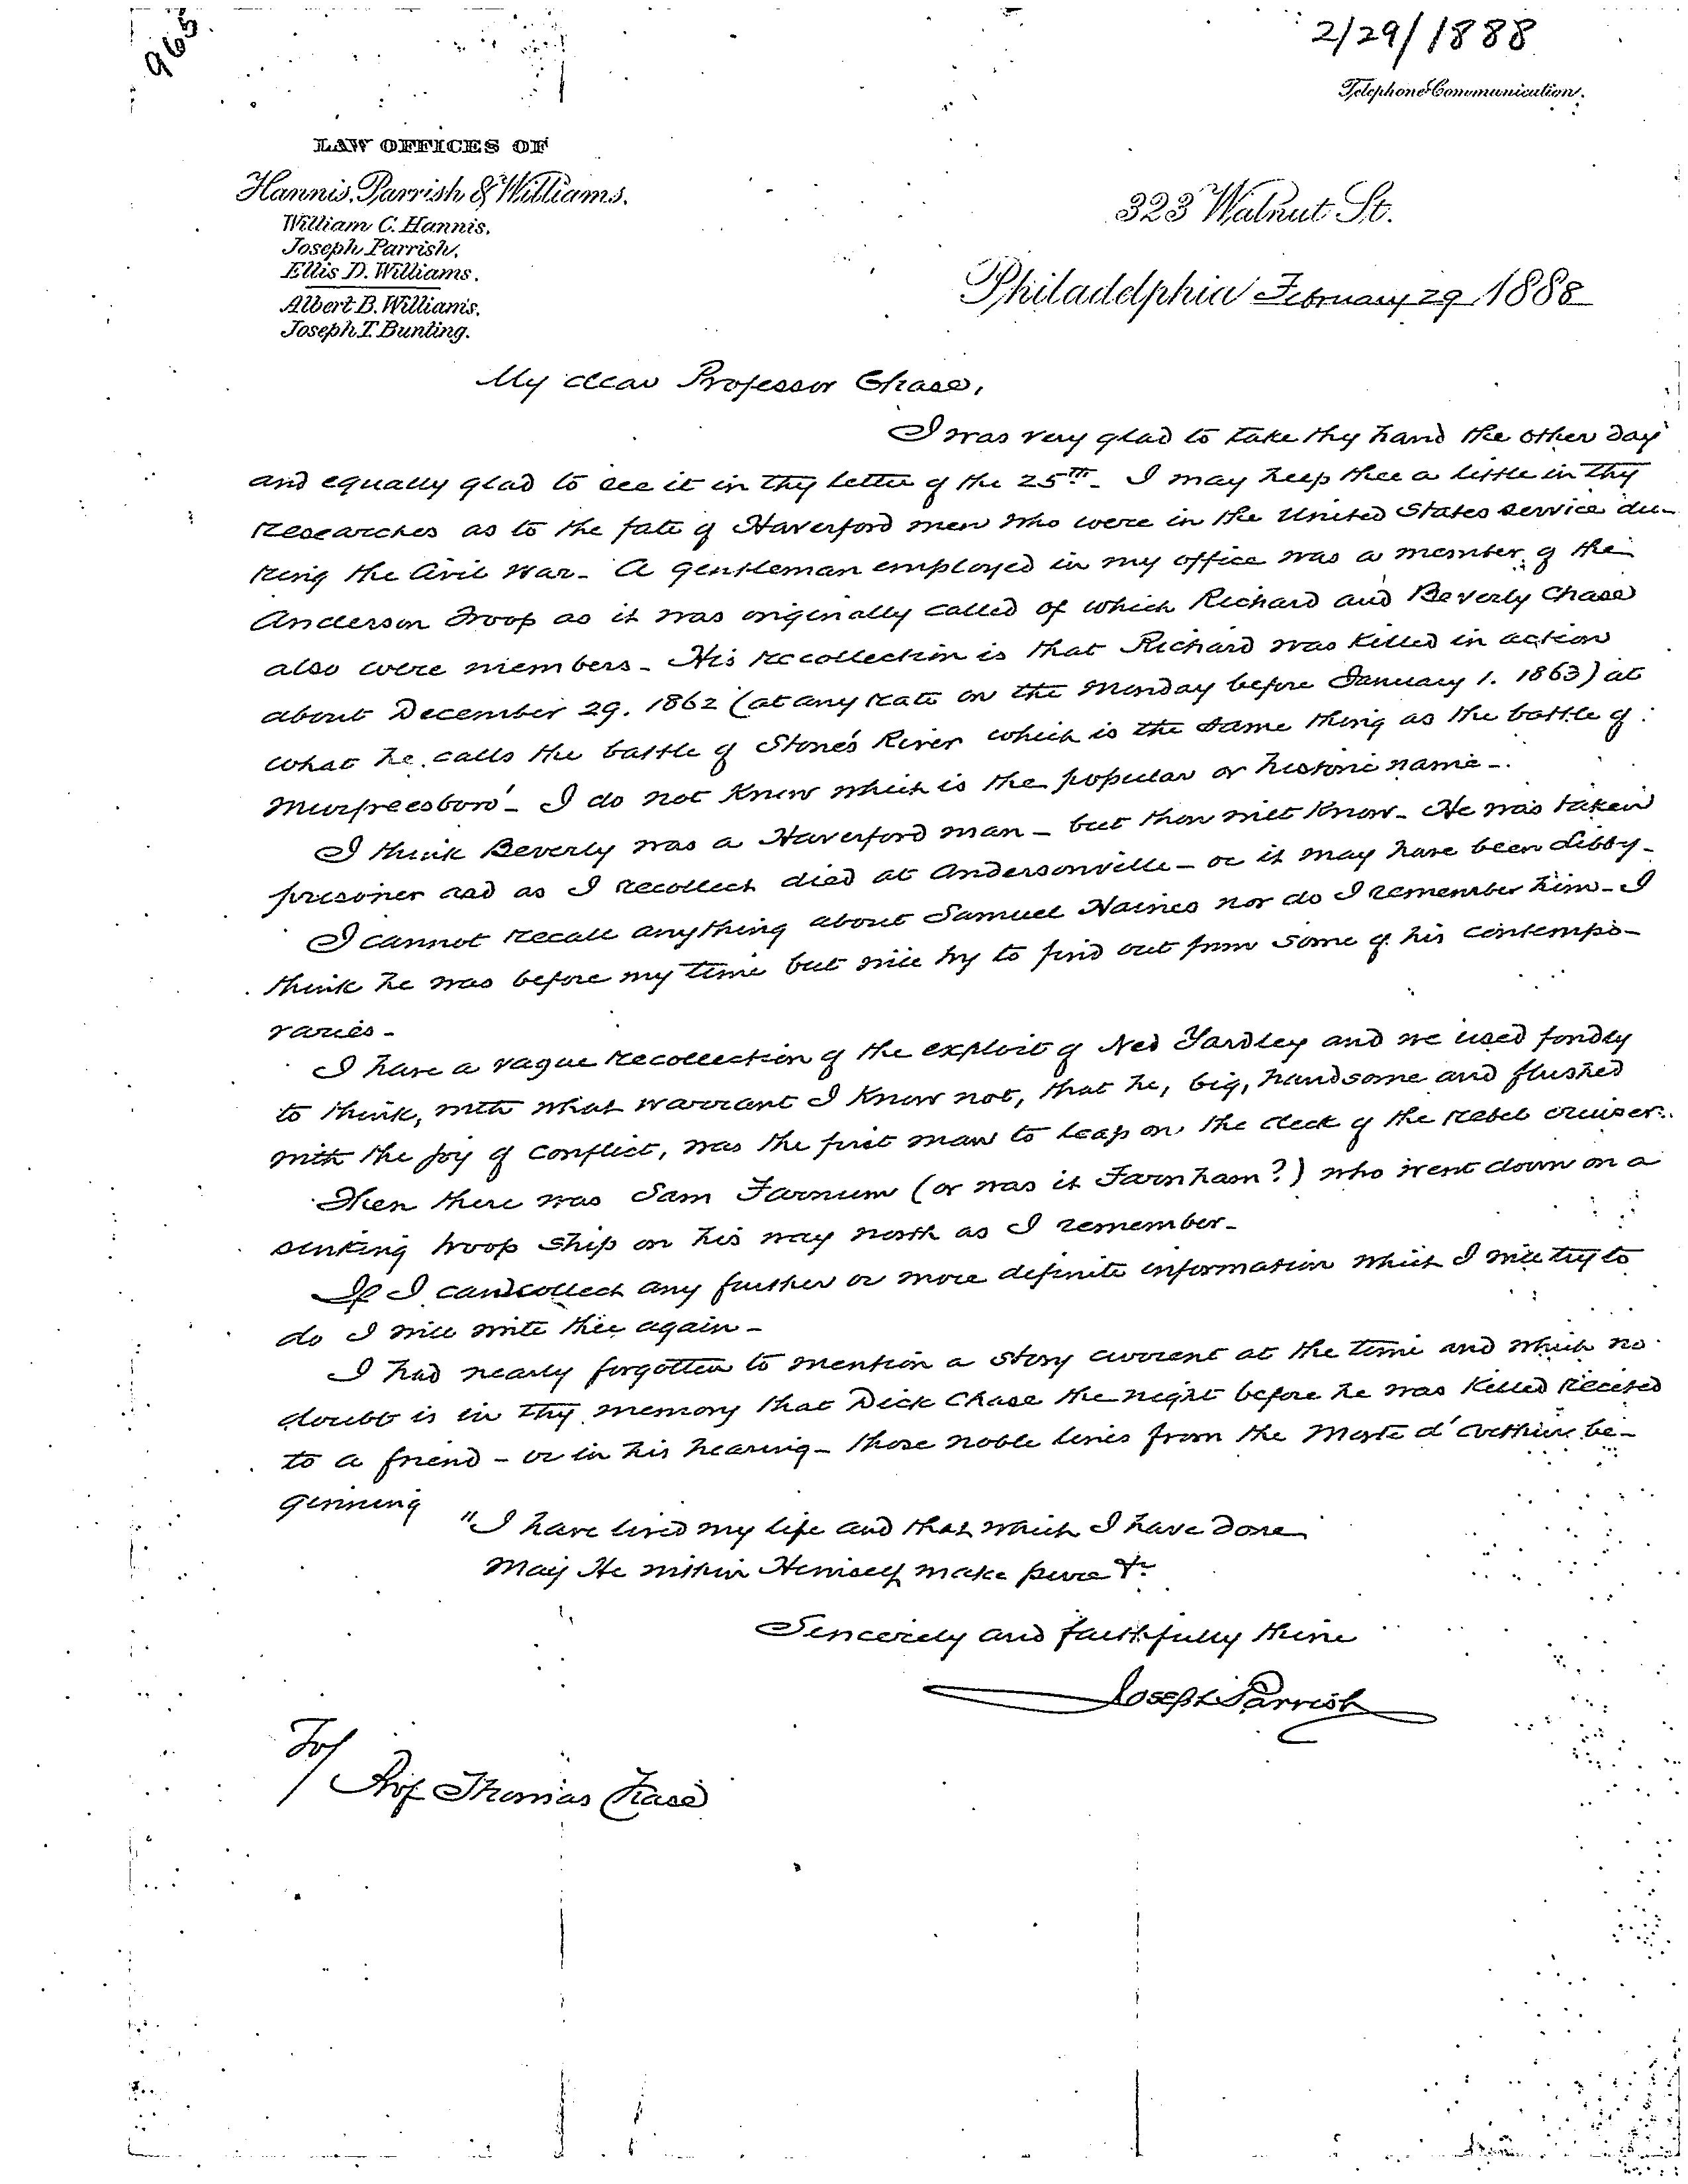 965
2/29/1888
Telephone Communication.
LAW OFFICES OF
Hannis, Parrish & Williams.
William C. Hannis.
Joseph Parrish.
Ellis D. Williams.
Albert B. Williams.
Joseph T. Bunting.
323 Walnut St.
Philadelphia February 29 1888
My dear Professor Chase,
I was very glad to take thy hand the other day
and equally glad to see it in thy letter of the 25th - I may help thee a little in thy
researches as to the fate of Haverford men who were in the United States service du-
ring the Civil War - A gentleman employed in my office was a member of the
Anderson Troop as it was originally called of which Richard and Beverly Chase
also were members - His recollection is that Richard was killed in action
about December 29. 1862 (at any rate on the Monday before January 1. 1863) at
what he calls the battle of Stone's River which is the same thing as the battle of
Murfreesboro' - I do not know which is the popular or historic name -
I think Beverly was a Haverford man - but thou wilt know - He was taken
prisoner and as I recollect died at Andersonville - or it may have been Libby -
I cannot recall anything about Samuel Haines nor do I remember him - I
think he was before my time but will try to find out from some of his contempo-
raries -
I have a vague recollection of the exploit of Ned Yardley and we used fondly
to think, with what warrant I know not, that he, big, handsome and flushed
with the joy of conflict, was the first man to leap on the deck of the rebel cruiser.
Then there was Sam Farnum (or was it Farnham?) who went down on a
sinking troop ship on his way north as I remember -
If I can collect any further or more definite information which I will try to
do I will write thee again -
I had nearly forgotten to mention a story current at the time and which no
doubt is in thy memory that Dick Chase the night before he was killed recited
to a friend - or in his hearing - those noble lines from the Morte d'Arthur be-
ginning
"I have lived my life and that which I have done
May He within Himself make pure &c
Sincerely and faithfully thine
Joseph Parrish
To/
Prof Thomas Chase